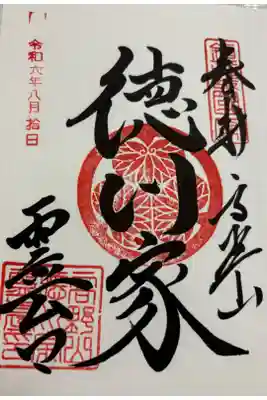 奉拝 高野山
徳川家
霊台
令和六年八月拾日